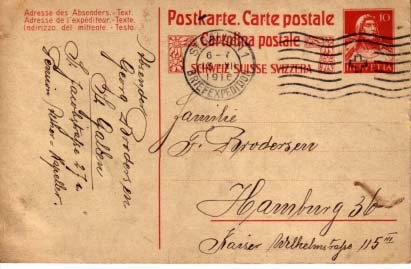 Adresse des Absenders. - Text
Adresse de l'expéditeur. - Texte
Indirizzo del mittente. - Testo
Postkarte. Carte postale
Cartolina postale
SCHWEIZ. SUISSE. SVIZZERA
10
HELVETIA
ST. GALLEN 1
BRIEFEXPEDITION
Absender
Georg Brodersen
St. Gallen
St. Jacobstrasse 27a
Pension
Familie
F. Brodersen
Hamburg 36
Kaiser Wilhelmstraße 115 III